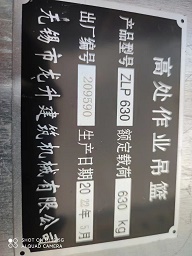 高处作业吊篮
产品型号 ZLP 630 额定载荷 630 kg
出厂编号 209590 生产日期 20
无锡市龙升建筑机械有限公司
SHOT ON MI 9 SE
AI TRIPLE CAMERA